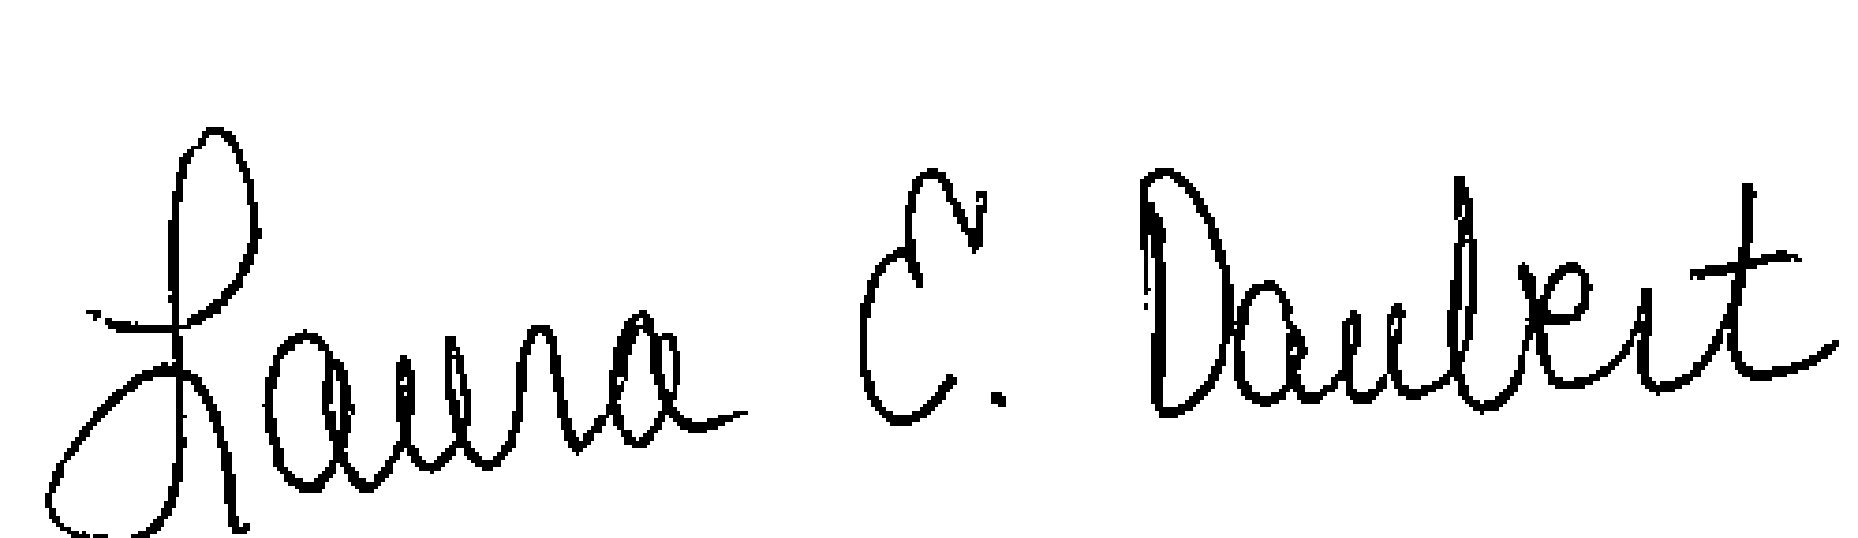 Laura C. Daubert